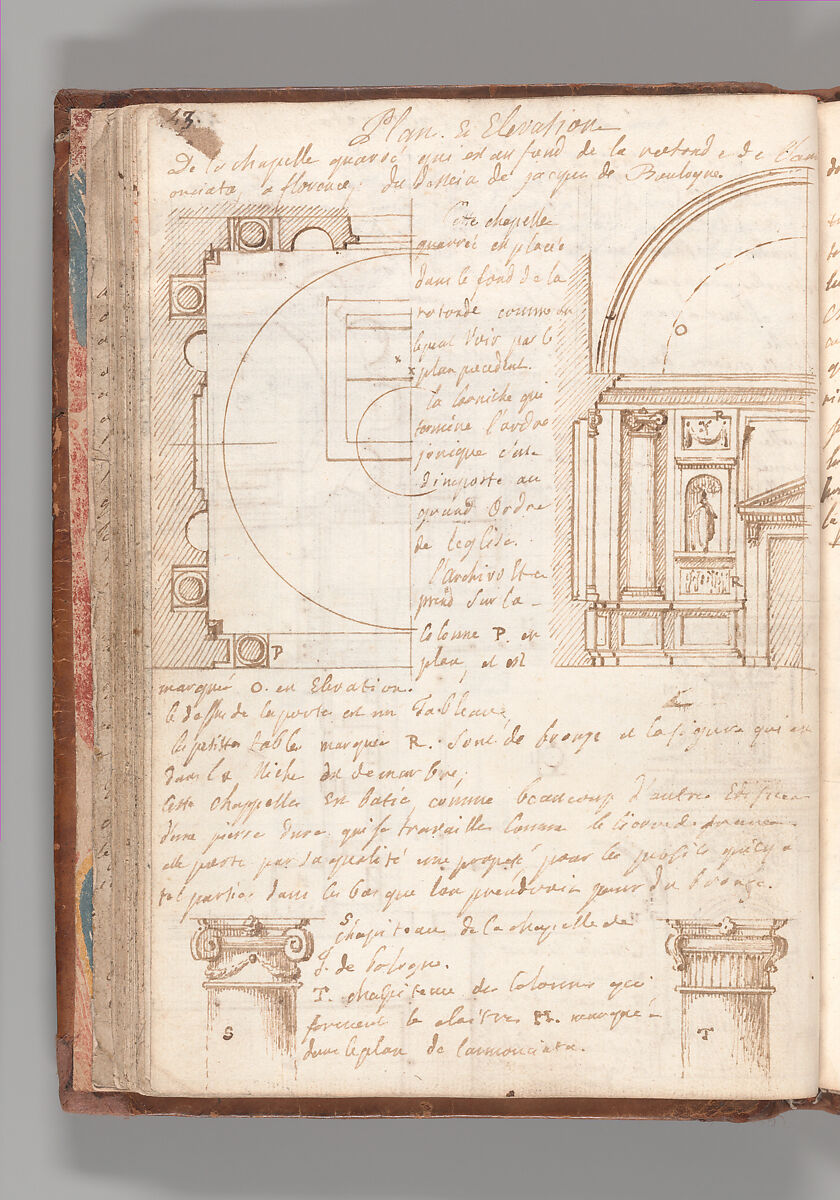 43.
Plan. Et Elevation
De la chapelle quarré qui est au fond de la rotonde de l'an
onciata, a florence, du dessein de jacques de Boulogne.
Cette chapelle
quarrée est placée
dans le fond de la
rotonde comme on
le peut Voir par le
plan precedent.
La Corniche qui
termine l'ordre
jonique sert
d'imposte au
grand Ordre
de l'eglise.
l'archivolte
prend sur la
Colonne P. en
plan, et est
marqué O. en Elevation.
le dessu de la porte est un Tableau,
les petittes tables marquee R. sont de bronze et la figure qui est
dans la Niche est de marbre,
Cette chappelle est batie, comme beaucoup d'autre Edifices
d'une pierre dure qui se travaille Comme le
elle porte par sa qualité une pour les profils qu'il y a
tel partie dans les bas que l'on prendroit pour du bronze.
S
chapiteau de la chapelle de
J. de bologne.
T. chapiteau des Colonnes qui
forment le cloitre H. marqué
dans le plan de l'annonciata.
P
O
R
R
S
T